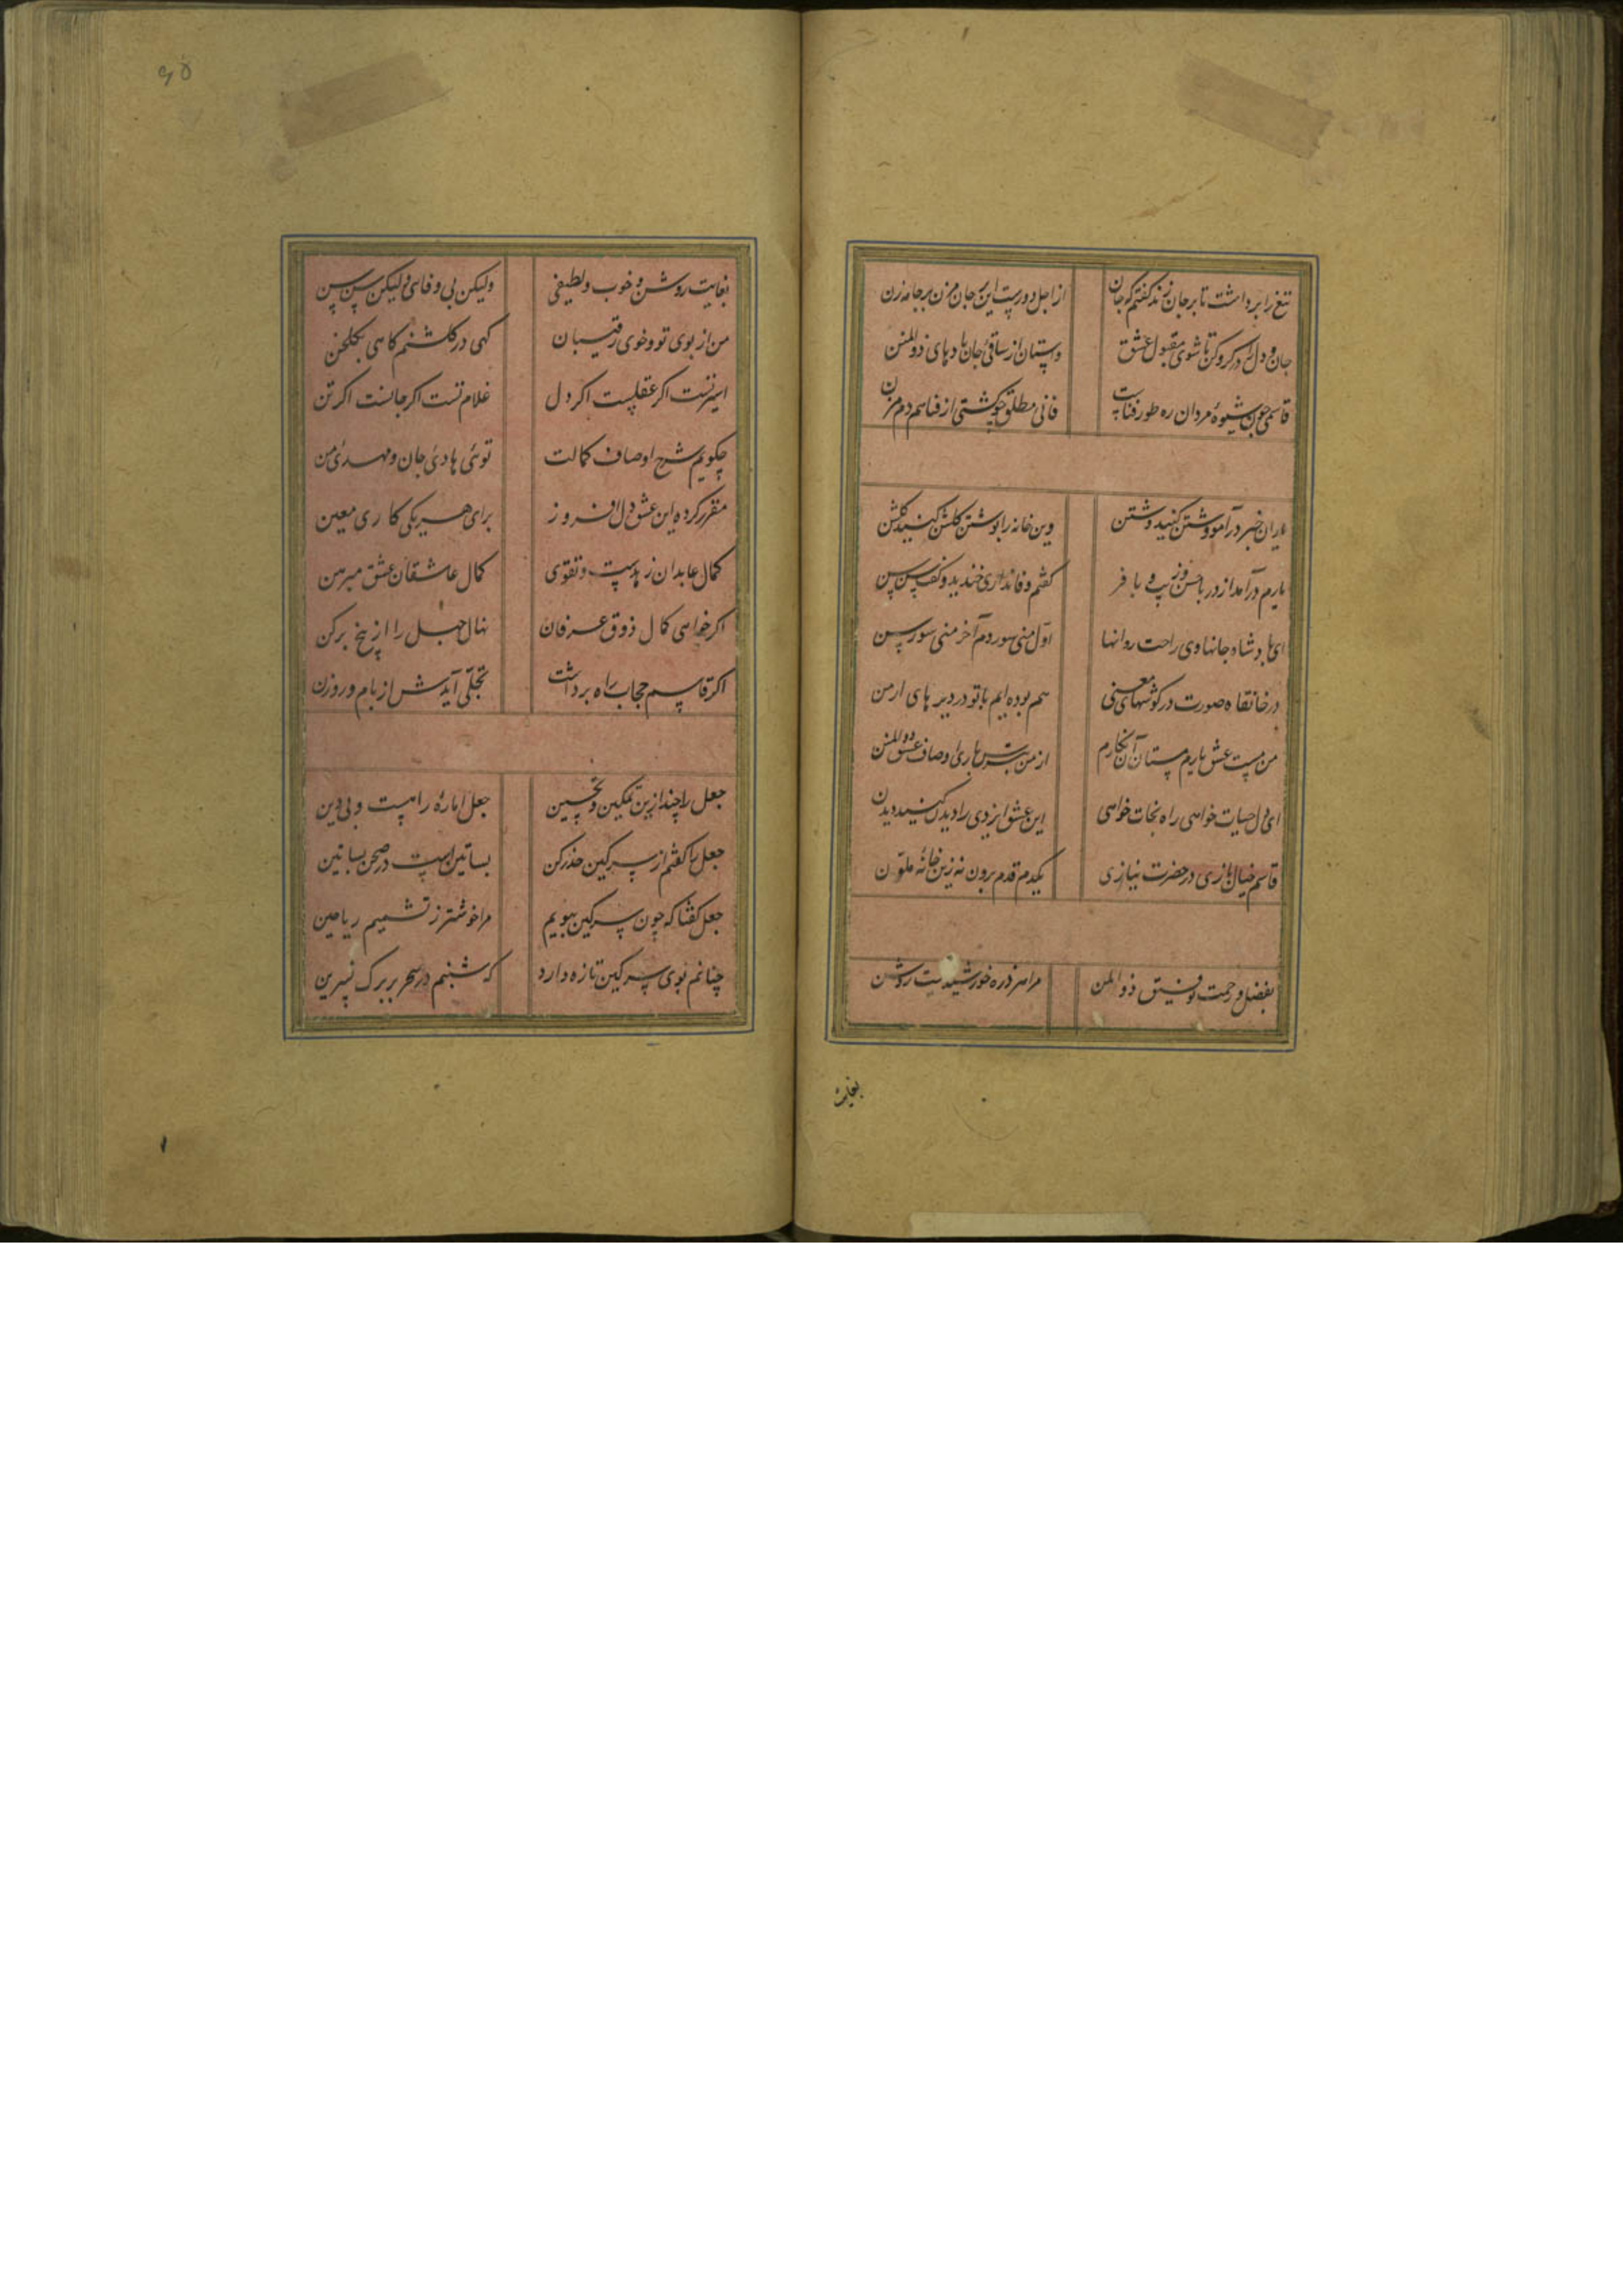 تیغ را برداشت تا بر جان زند گفتم که جان از اجل دورست این بر جان مزن بر جامه زن
جان و دل را در گرو کن تا شوی مقبول عشق واستان از ساقی جان بادهای ذوالمنن
قاسمی چون شیوه مردان ره طور فناست فانی مطلق چو گشتی از فنا هم دم مزن
یاران خبر درآمد وشتن کنید وشتن وین خانه را بوشتن گلشن کنید گلشن
یارم درآمد از در با حسن و زیب و با فر گفتم وفا نداری خندید و گفت سن سن
ای پادشاه جانها وی راحت روانها اول منی سوردم آخر منی سورسن
در خانقاه صورت در گوشهای معنی هم بوده ایم با تو در دیر های ارمن
من مست عشق یارم مستان آن نگارم از من بپرس باری اوصاف عشق ذوالمنن
ای دل حیات خواهی راه نجات خواهی این عشق ایزدی را دیدن کنید دیدن
قاسم خیال بازی در حضرت نیازی یکدم قدم برون نه زین خانه ملون
بفضل و رحمت توفیق ذو المن مرا هر ذره خورشیدیست روشن
بغایت
۹۵
بغایت روشن و خوب و لطیفی ولیکن بی وفای ولیکن سن سن
من از بوی تو و خوی رقیبان گهی در گلشنم گاهی بگلخن
اسیر تست اگر عقلست اگر دل غلام تست اگر جانست اگر تن
چگویم شرح اوصاف کمالت توئی هادی جان و مهدی من
مقرر کرده این عشق دل افروز برای هر یکی کاری معین
کمال عابدان زهدست و تقوی کمال عاشقان عشق مبرهن
اگر خواهی کمال ذوق عرفان نهال جهل را از بیخ برکن
اگر قاسم حجاب راه برداشت تجلی آیدش از بام و روزن
جعل را چند ازین تمکین و تحسین جعل اماره را هست و بی دین
جعل را گفتم از سرگین حذر کن بساتین است در صحن بساتین
جعل گفتا که چون سرگین ببویم مرا خوشتر ز تشمیم ریاحین
چنانم بوی سرگین تازه دارد که شبنم در سحر بر برگ نسرین